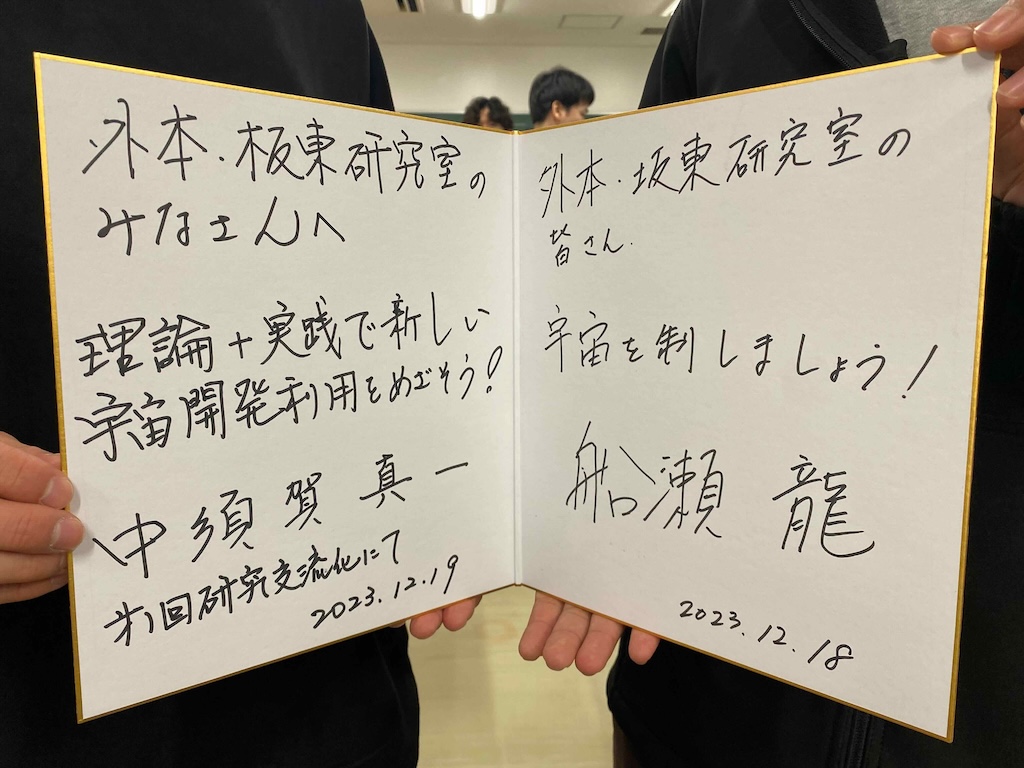 外本・板東研究室の
みなさんへ
理論+実践で新しい
宇宙開発利用をめざそう!
中須賀真一
オ1回研究交流化にて
2023.12.19
外本・坂東研究室の
皆さん.
宇宙を制しましょう!
船瀬 龍
2023.12.18